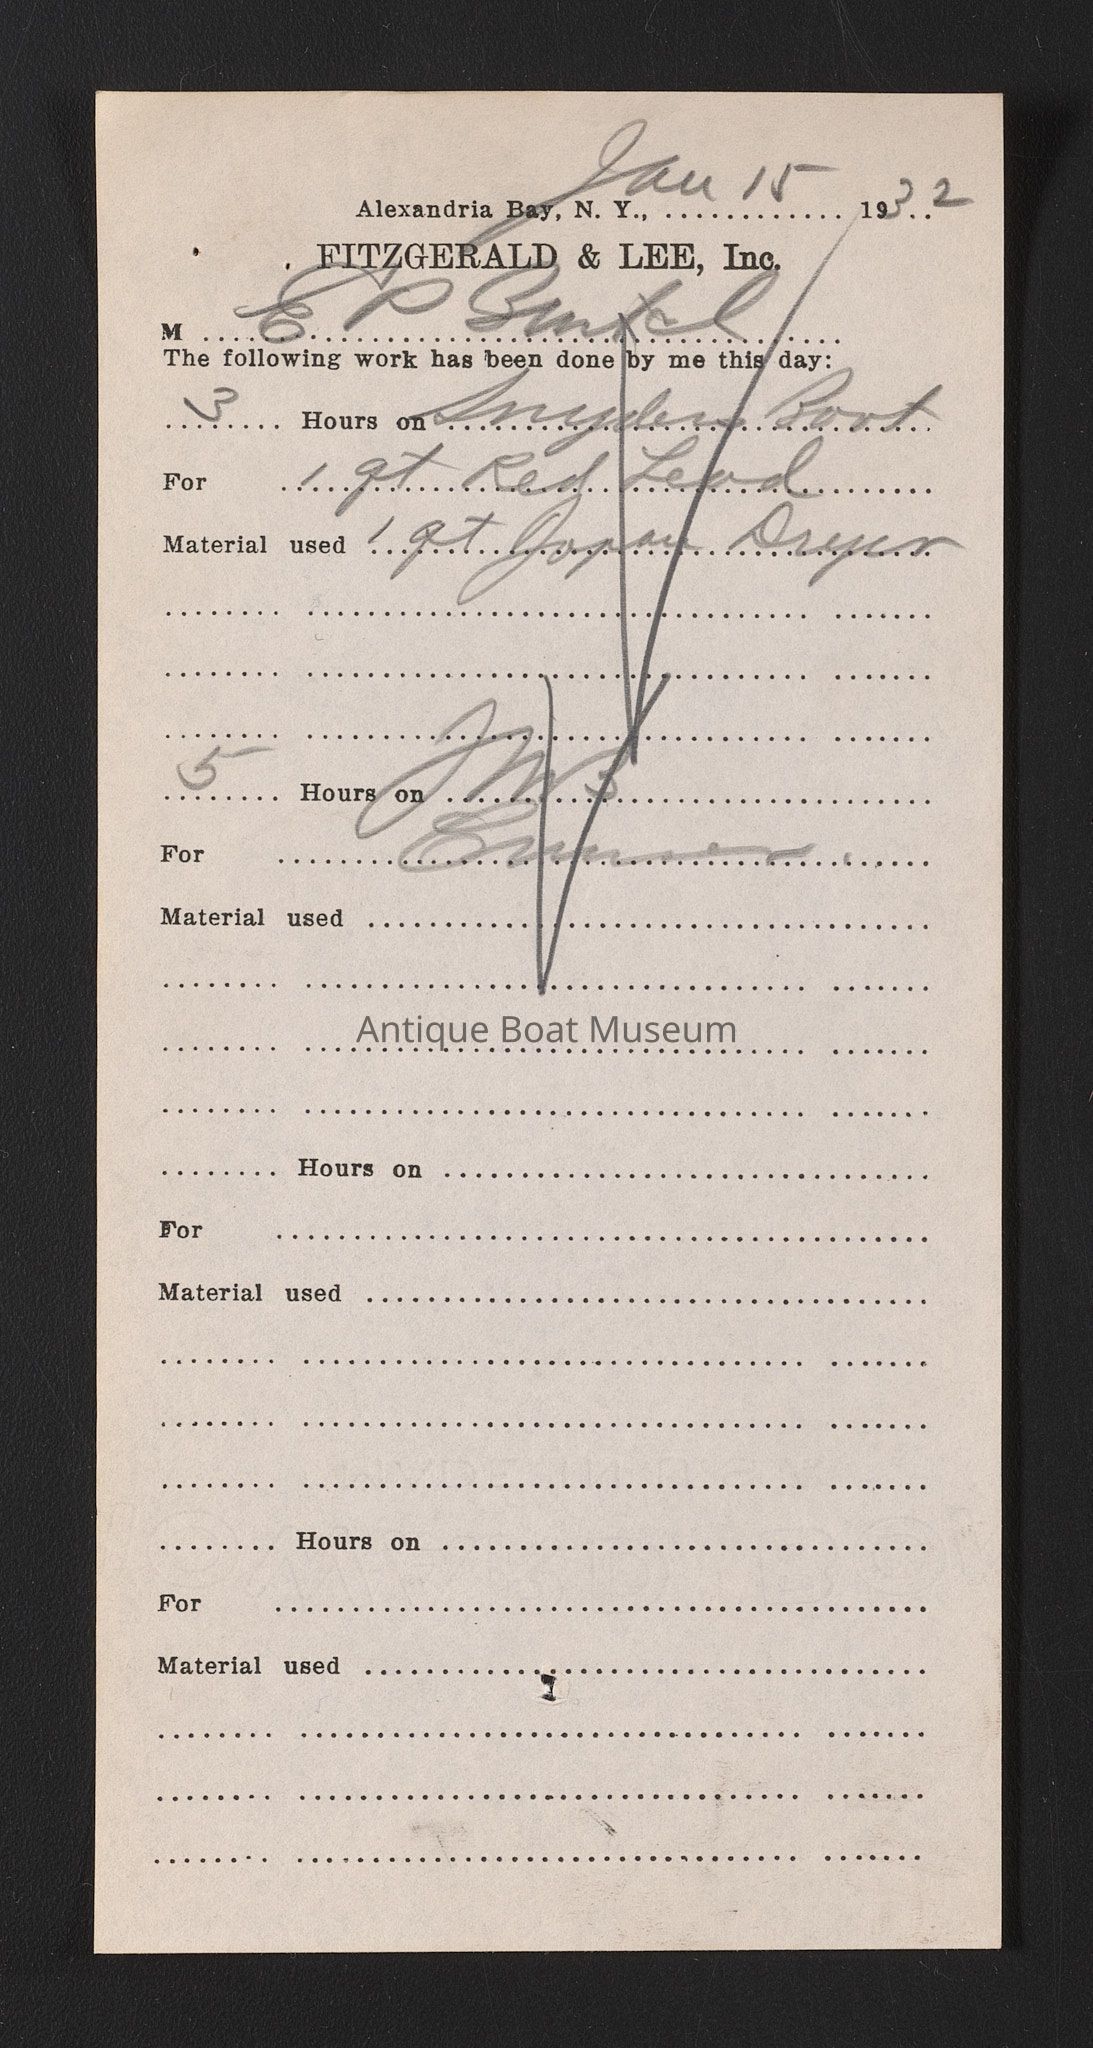 Jan 15
Alexandria Bay, N. Y., ............. 1932
FITZGERALD & LEE, Inc.
M E P
The following work has been done by me this day:
3 Hours on Snyders Boat
For 1 qt Red Lead
Material used 1 qt Japan Dryer
5 Hours on
For
Material used
Antique Boat Museum
Hours on
For
Material used
Hours on
For
Material used